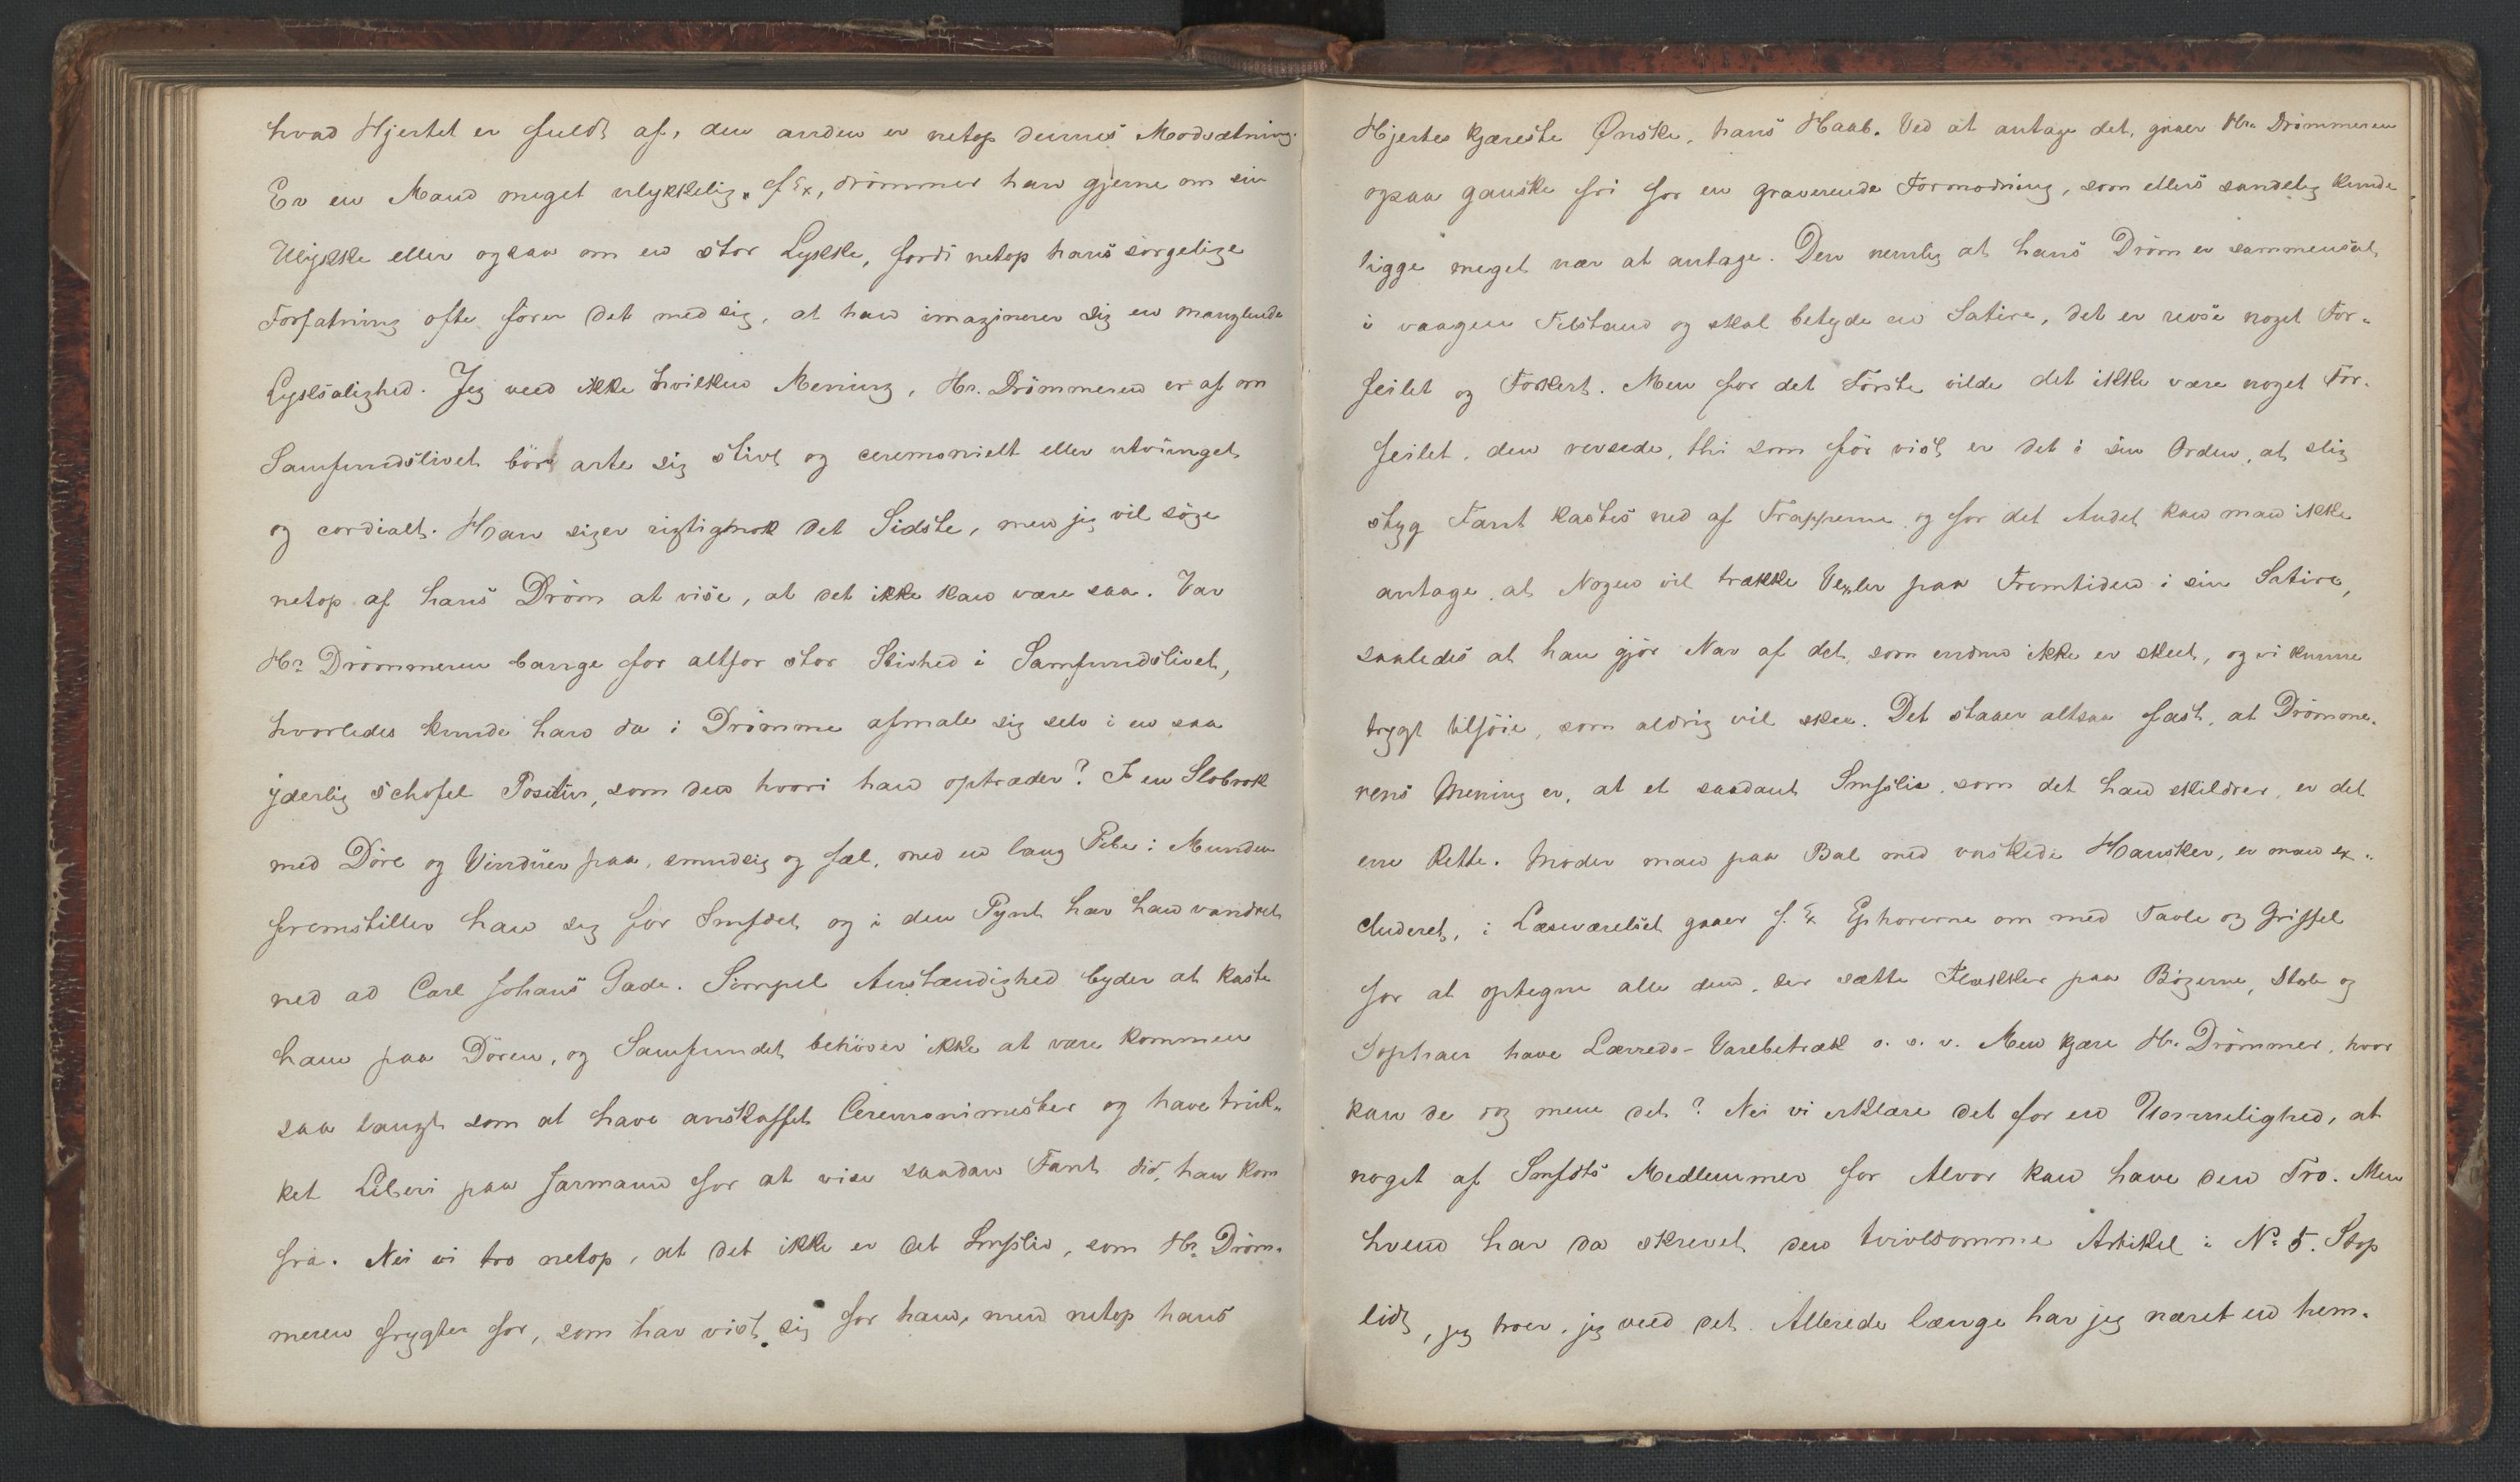 hvad Hjertet er fuldt af, den anden er netop dennes Modsætning.
Er en Mand meget ulykkelig f. Ex, drömmer han gjerne om sin
Ulykke eller ogsaa om en stor Lykke, fordi netop hans sorgelige
Forfatning ofte förer det med sig, at han imaginerer sig en manglende
Lyksalighed. Jeg veed ikke hvilken Mening, Hr. Drömmeren er af om
Samfundslivet bör arte sig stivt og ceremonielt eller utvunget
og cordialt. Han siger rigtignok det Sidste, men jeg vil söge
netop af hans Dröm at vise, at det ikke kan være saa. Var
Hr. Drömmeren bange for altfor stor Stivhed i Samfundslivet,
hvorledes kunde han da i Drömme afmale sig selv i en saa
yderlig schofel Positur, som den hvori han optræder? I en Slobrok
med Döre og Vinduer paa, smudsig og fæl, med en lang Pibe i Munden
fremstiller han sig for Smfdet og i den Pynt har han vandret
ned ad Carl Johans Gade. Simpel Anstændighed byder at kaste
ham paa Dören, og Samfundet behöver ikke at være kommen
saa langt som at have anskaffet Ceremonimester og have truk-
ket Liberi paa Jarmann for at vise saadan Fant did, han kom
fra. Nei vi tro netop, at det ikke er det Smfsliv, som Hr. Dröm-
meren frygter for, som har vist sig for ham, men netop hans
Hjertes kjæreste Ønske, hans Haab. Ved at antage det, gaaer Hr. Drömmeren
ogsaa ganske fri for en graverende Formodning, som ellers sandelig kunde
ligge meget nær at antage. Den nemlig at hans Dröm er sammensat
i vaagen Tilstand og skal betyde en Satire, det er revse noget For-
feilet og Forkert. Men for det Förste vilde det ikke være noget For-
feilet, den revsede, thi som för vist er det i sin Orden, at slig
styg Fant kastes ned af Trapperne og for det Andet kan man ikke
antage, at Nogen vil trække Vexler paa Fremtiden i sin Satire,
saaledes at han gjör Nar af det, som endnu ikke er skeet, og vi kunne
trygt tilföie, som aldrig vil skee. Det staaer altsaa fast, at Drömme-
rens Mening er, at et saadant Smfsliv, som det han skildrer, er det
ene Rette. Möder man paa Bal med vaskede Hansker, er man ex-
cluderet, i Læseværelset gaaer f. Ex Ephorerne om med Tavle og Griffel
for at optegne alle dem, der sætte Flækker paa Bögerne, Stole og
Sophaer have Lærreds-Varebetræk o. s. v. Men kjære Hr. Drömmer, hvor
kan de dog mene det? Nei vi erklære det for en Umulighed, at
noget af Smfdts Medlemmer for Alvor kan have den Tro. Men
hvem har da skrevet den tvivlsomme Artikel i No 5. Stop
lidt, jeg troer, jeg veed det. Allerede længe har jeg næret en hem-